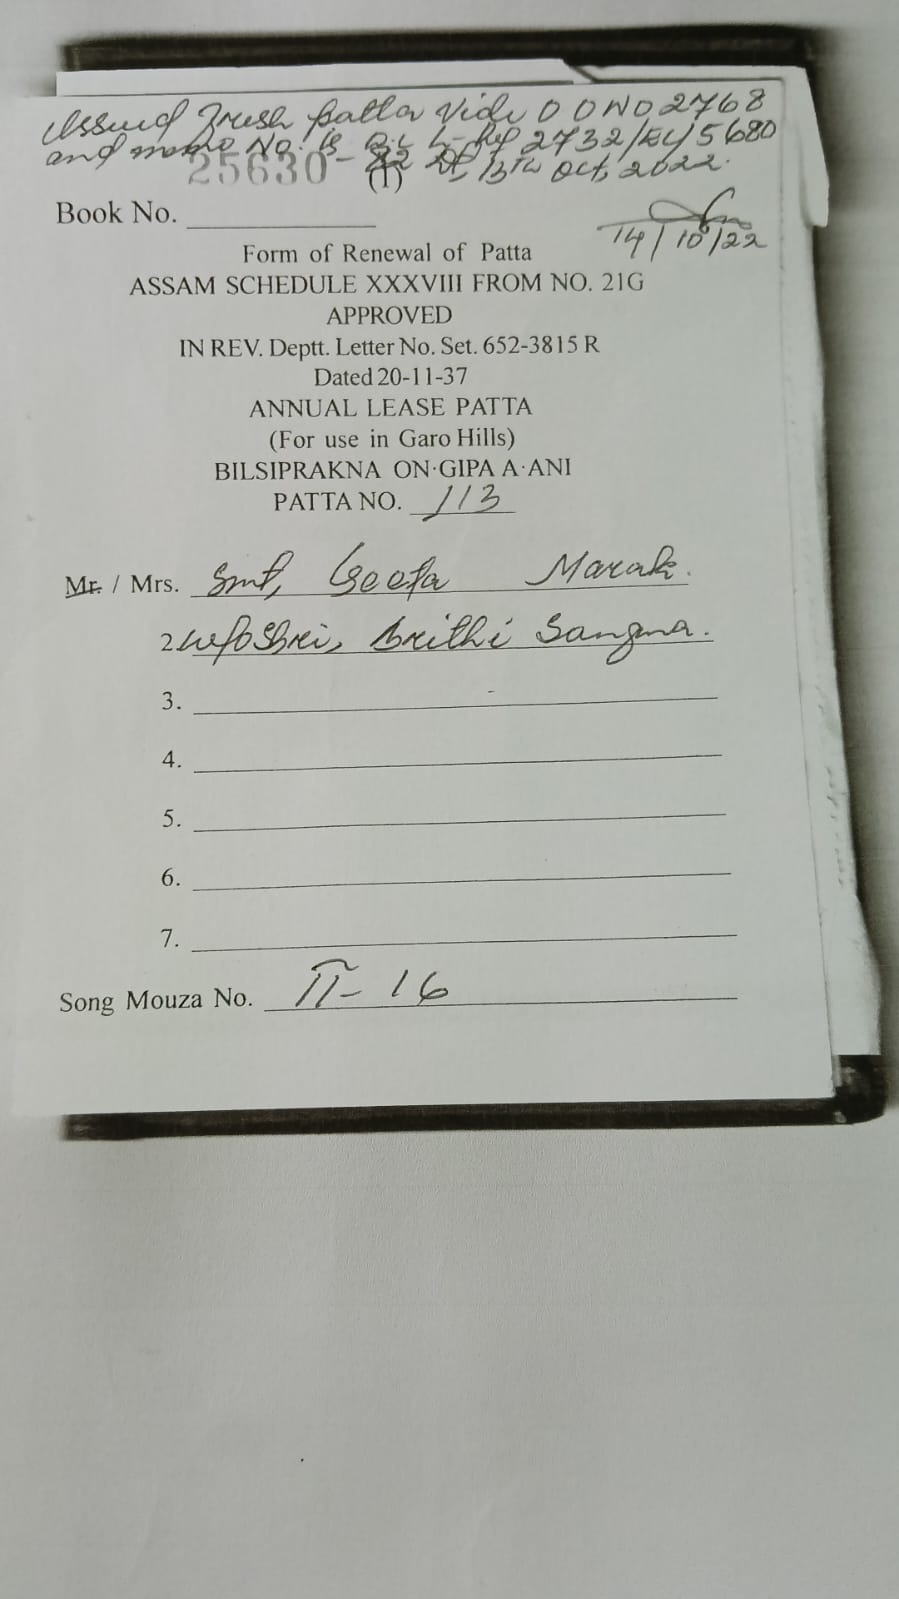 Issued Fresh patta Vide O O NO 2768
and memo No. 2732/EC/5680
25630 - 82 Dt, 13th Oct, 2022.
(1)
Book No.
14/10/22
Form of Renewal of Patta
ASSAM SCHEDULE XXXVIII FROM NO. 21G
APPROVED
IN REV. Deptt. Letter No. Set. 652-3815 R
Dated 20-11-37
ANNUAL LEASE PATTA
(For use in Garo Hills)
BILSIPRAKNA ON·GIPA A·ANI
PATTA NO. 113
Mr. / Mrs. Smt, Geeta Marak.
2 w/o Shri, Brithi Sangma.
3.
4.
5.
6.
7.
Song Mouza No. II - 16